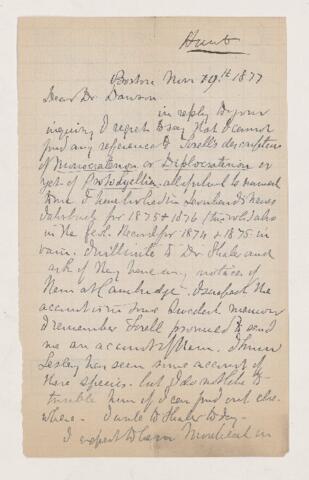 Hunt
Boston Nov 19th 1877
Dear Dr. Dawson
in reply to your
inquiry I regret to say that I cannot
find any reference to Torell's description
of Monocraterion or Diplocraterion or
yet of Protolyellia, all of which he named
to me. I have looked in Leonhard's neues
Jahrbuch for 1875 & 1876 also
in the Geol. Record for 1874 & 1875 in
vain. I will write to Dr Hale and
ask if they have any notices of
them at Cambridge. I suspect the
account is in some Swedish memoir
I remember Torell promised to send
me an account of them. I know
Lesley has seen some account of
these species. but I do not like to
trouble him if I can find out else
where. I write to Hale to day.
I expect to be in Montreal in